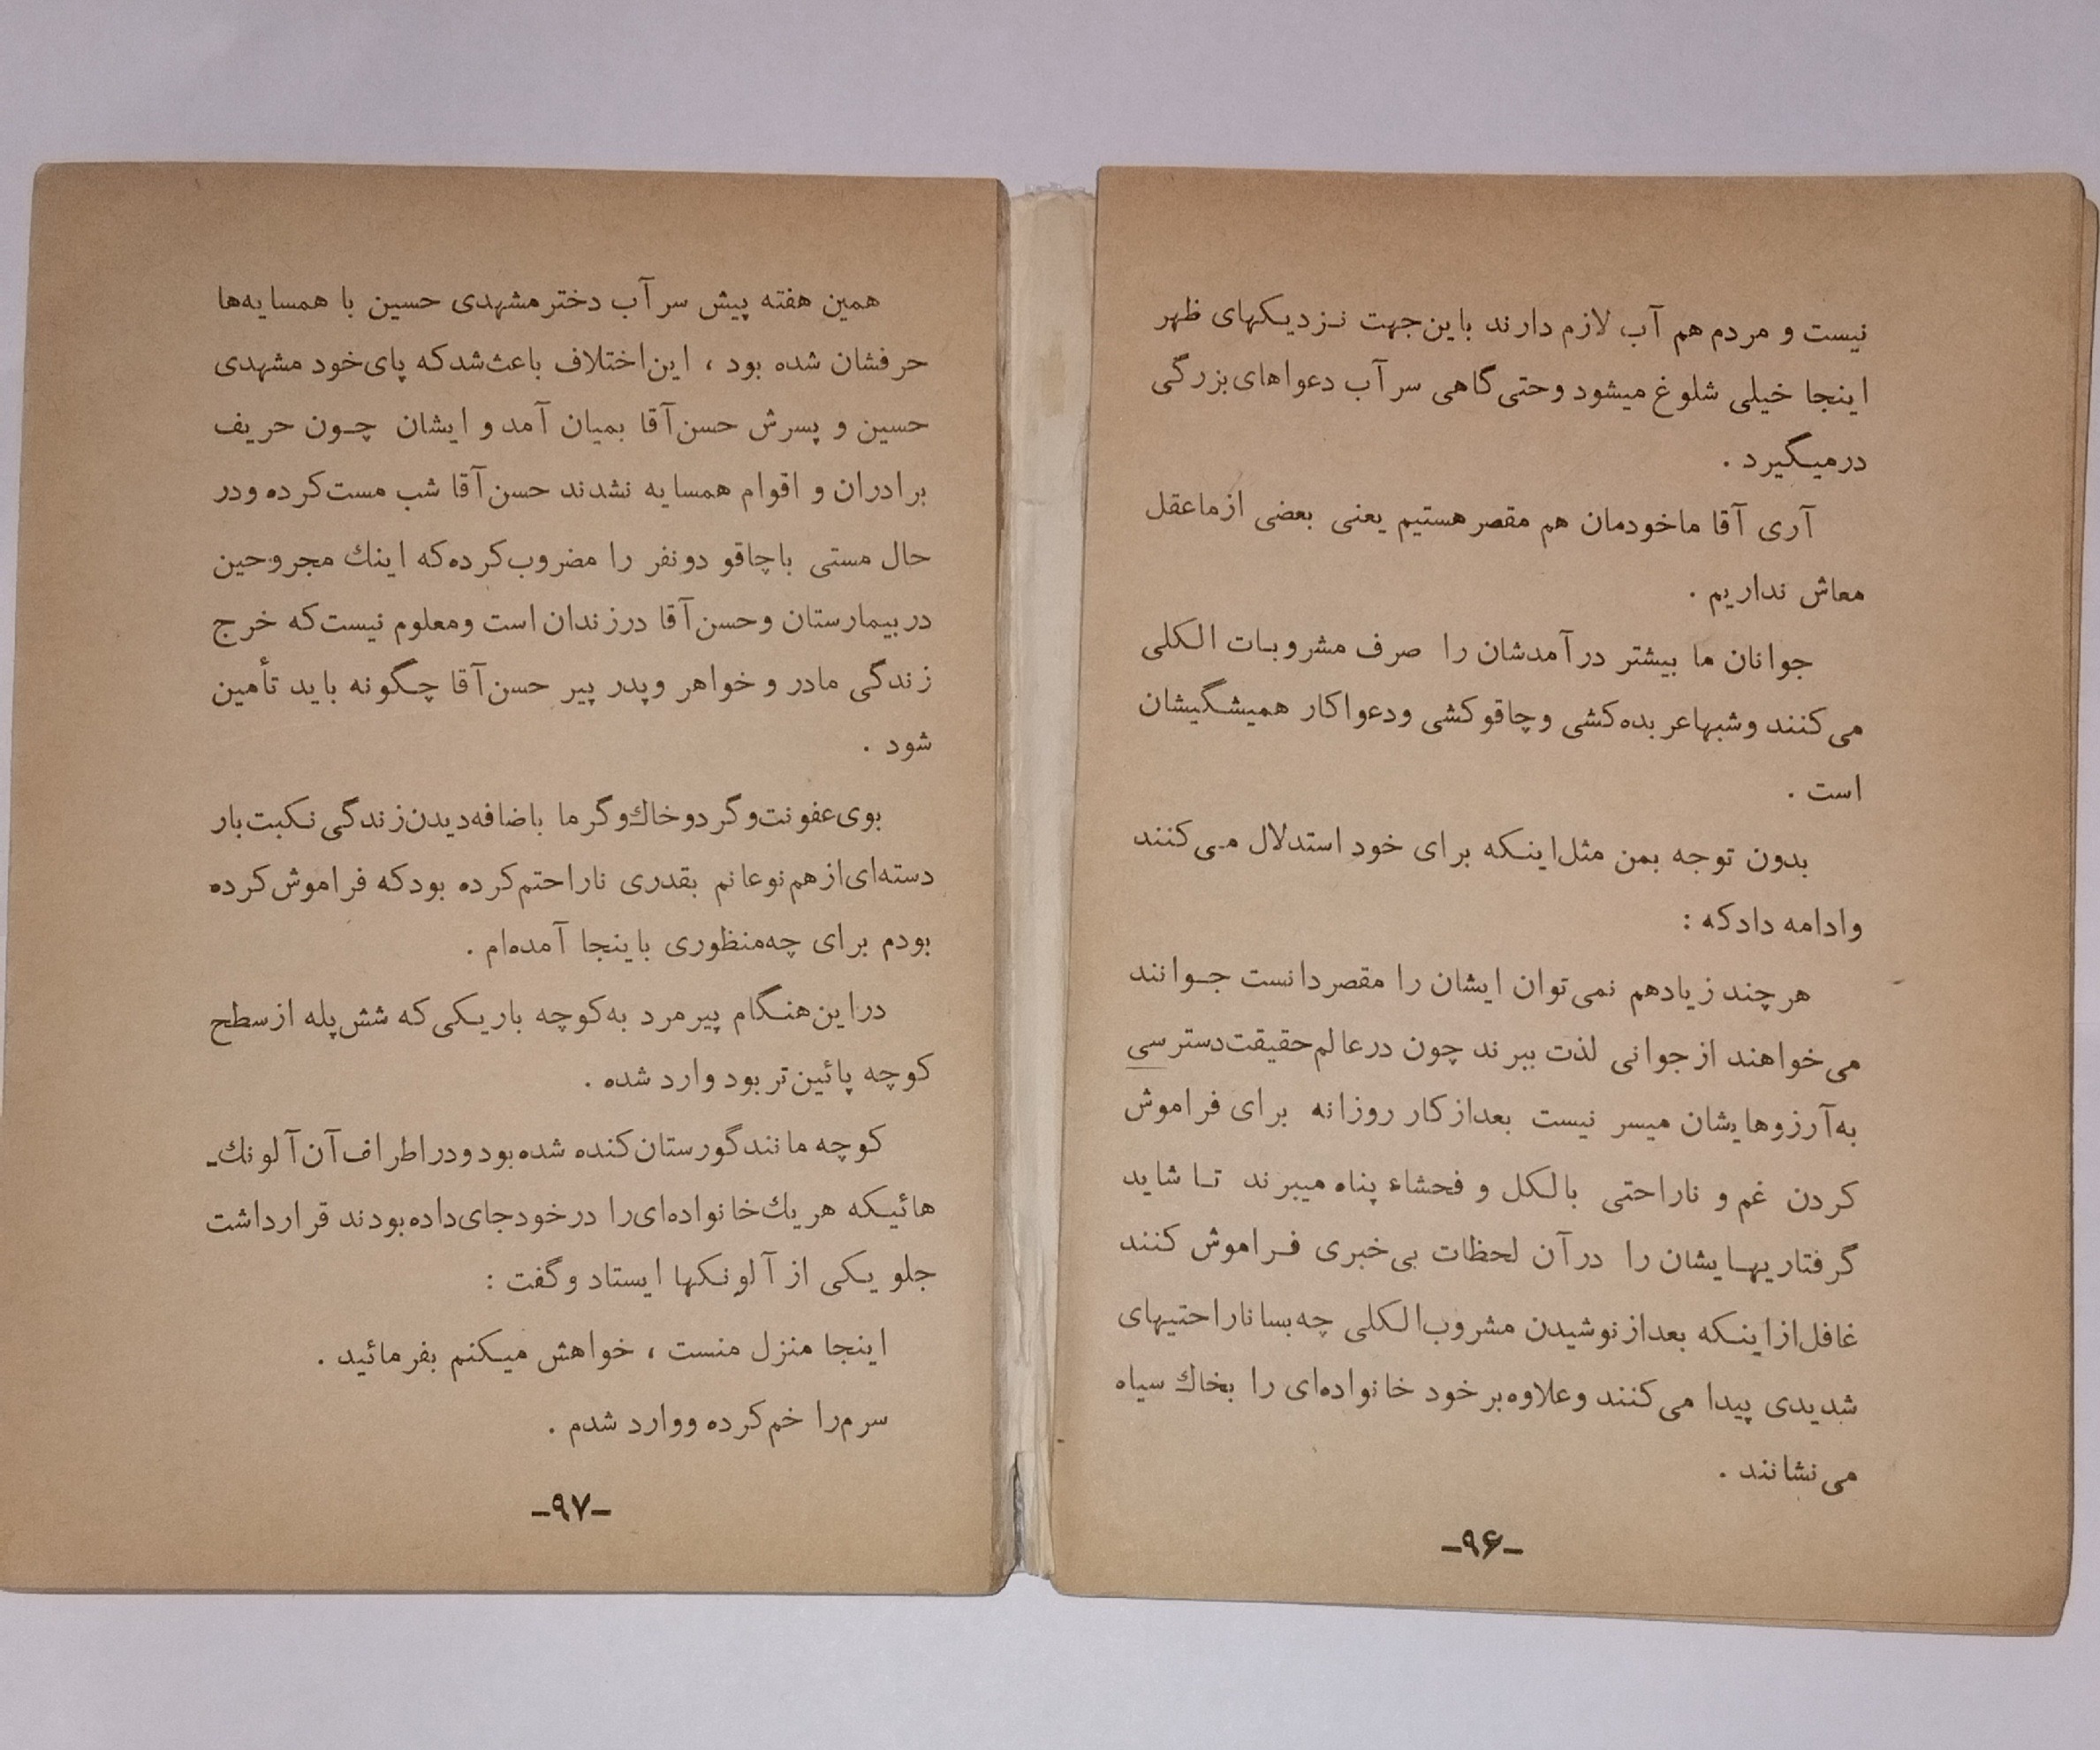 نیست و مردم هم آب لازم دارند باین‌جهت نـزدیـکهای ظهر
اینجا خیلی شلوغ میشود وحتی‌گاهی سر آب دعواهای‌بزرگی
درمیـگیرد .
آری آقا ماخودمان هم مقصرهستیم یعنی بعضی ازماعقل
معاش نداریم .
جوانان ما بیشتر درآمدشان را صرف مشروبـات الـکلی
می‌کنند وشبهاعربده‌کشی وچاقوکشی ودعواکار همیشـگیشان
است .
بدون توجه بمن مثل‌اینـکه برای خود استدلال مـی‌کنند
وادامه دادکه :
هرچند زیادهم نمی‌توان ایشان را مقصردانست جـوانند
می‌خواهند ازجوانی لذت ببرند چون درعالم‌حقیقت‌دسترسی
به‌آرزوهایشان میسر نیست بعدازکار روزانه برای فراموش
کردن غم و ناراحتی بالـکل و فحشاء پناه میبرند تـا شاید
گرفتاریهـایشان را درآن لحظات بی‌خبری فـراموش کنند
غافل‌ازاینـکه بعدازنوشیدن مشروب‌الـکلی چه‌بساناراحتیهای
شدیدی پیدا می‌کنند وعلاوه‌برخود خانواده‌ای را بخاك سیاه
می‌نشانند .
-۹۶-
همین هفته پیش سرآب دخترمشهدی حسین با همسایه‌ها
حرفشان شده بود ، این‌اختلاف باعث‌شدکه پای‌خود مشهدی
حسین و پسرش حسن‌آقا بمیان آمد و ایشان چـون حریف
برادران و اقوام همسایه نشدند حسن‌آقا شب مست‌کرده ودر
حال مستی باچاقو دونفر را مضروب‌کرده‌که اینك مجروحین
دربیمارستان وحسن‌آقا درزندان‌است ومعلوم نیست‌که خرج
زندگی مادر و خواهر وپدر پیر حسن‌آقا چـگونه باید تأمین
شود .
بوی‌عفونت‌وگردوخاك‌وگرما باضافه‌دیدن‌زندگی نـکبت‌بار
دسته‌ای‌ازهم‌نوعانم بقدری ناراحتم‌کرده بودکه فراموش‌کرده
بودم برای چه‌منظوری باینجا آمده‌ام .
دراین‌هنـگام پیرمرد به‌کوچه باریـکی‌که شش‌پله ازسطح
کوچه پائین‌تربود وارد شده .
کوچه مانندگورستان‌کنده شده‌بود ودراطراف‌آن‌آلونك‌ـ
هائیـکه هریك‌خانواده‌ای‌را درخودجای‌داده‌بودند قرارداشت
جلو یـکی از آلونـکها ایستاد وگفت :
اینجا منزل منست ، خواهش میـکنم بفرمائید .
سرم‌را خم‌کرده ووارد شدم .
-۹۷-